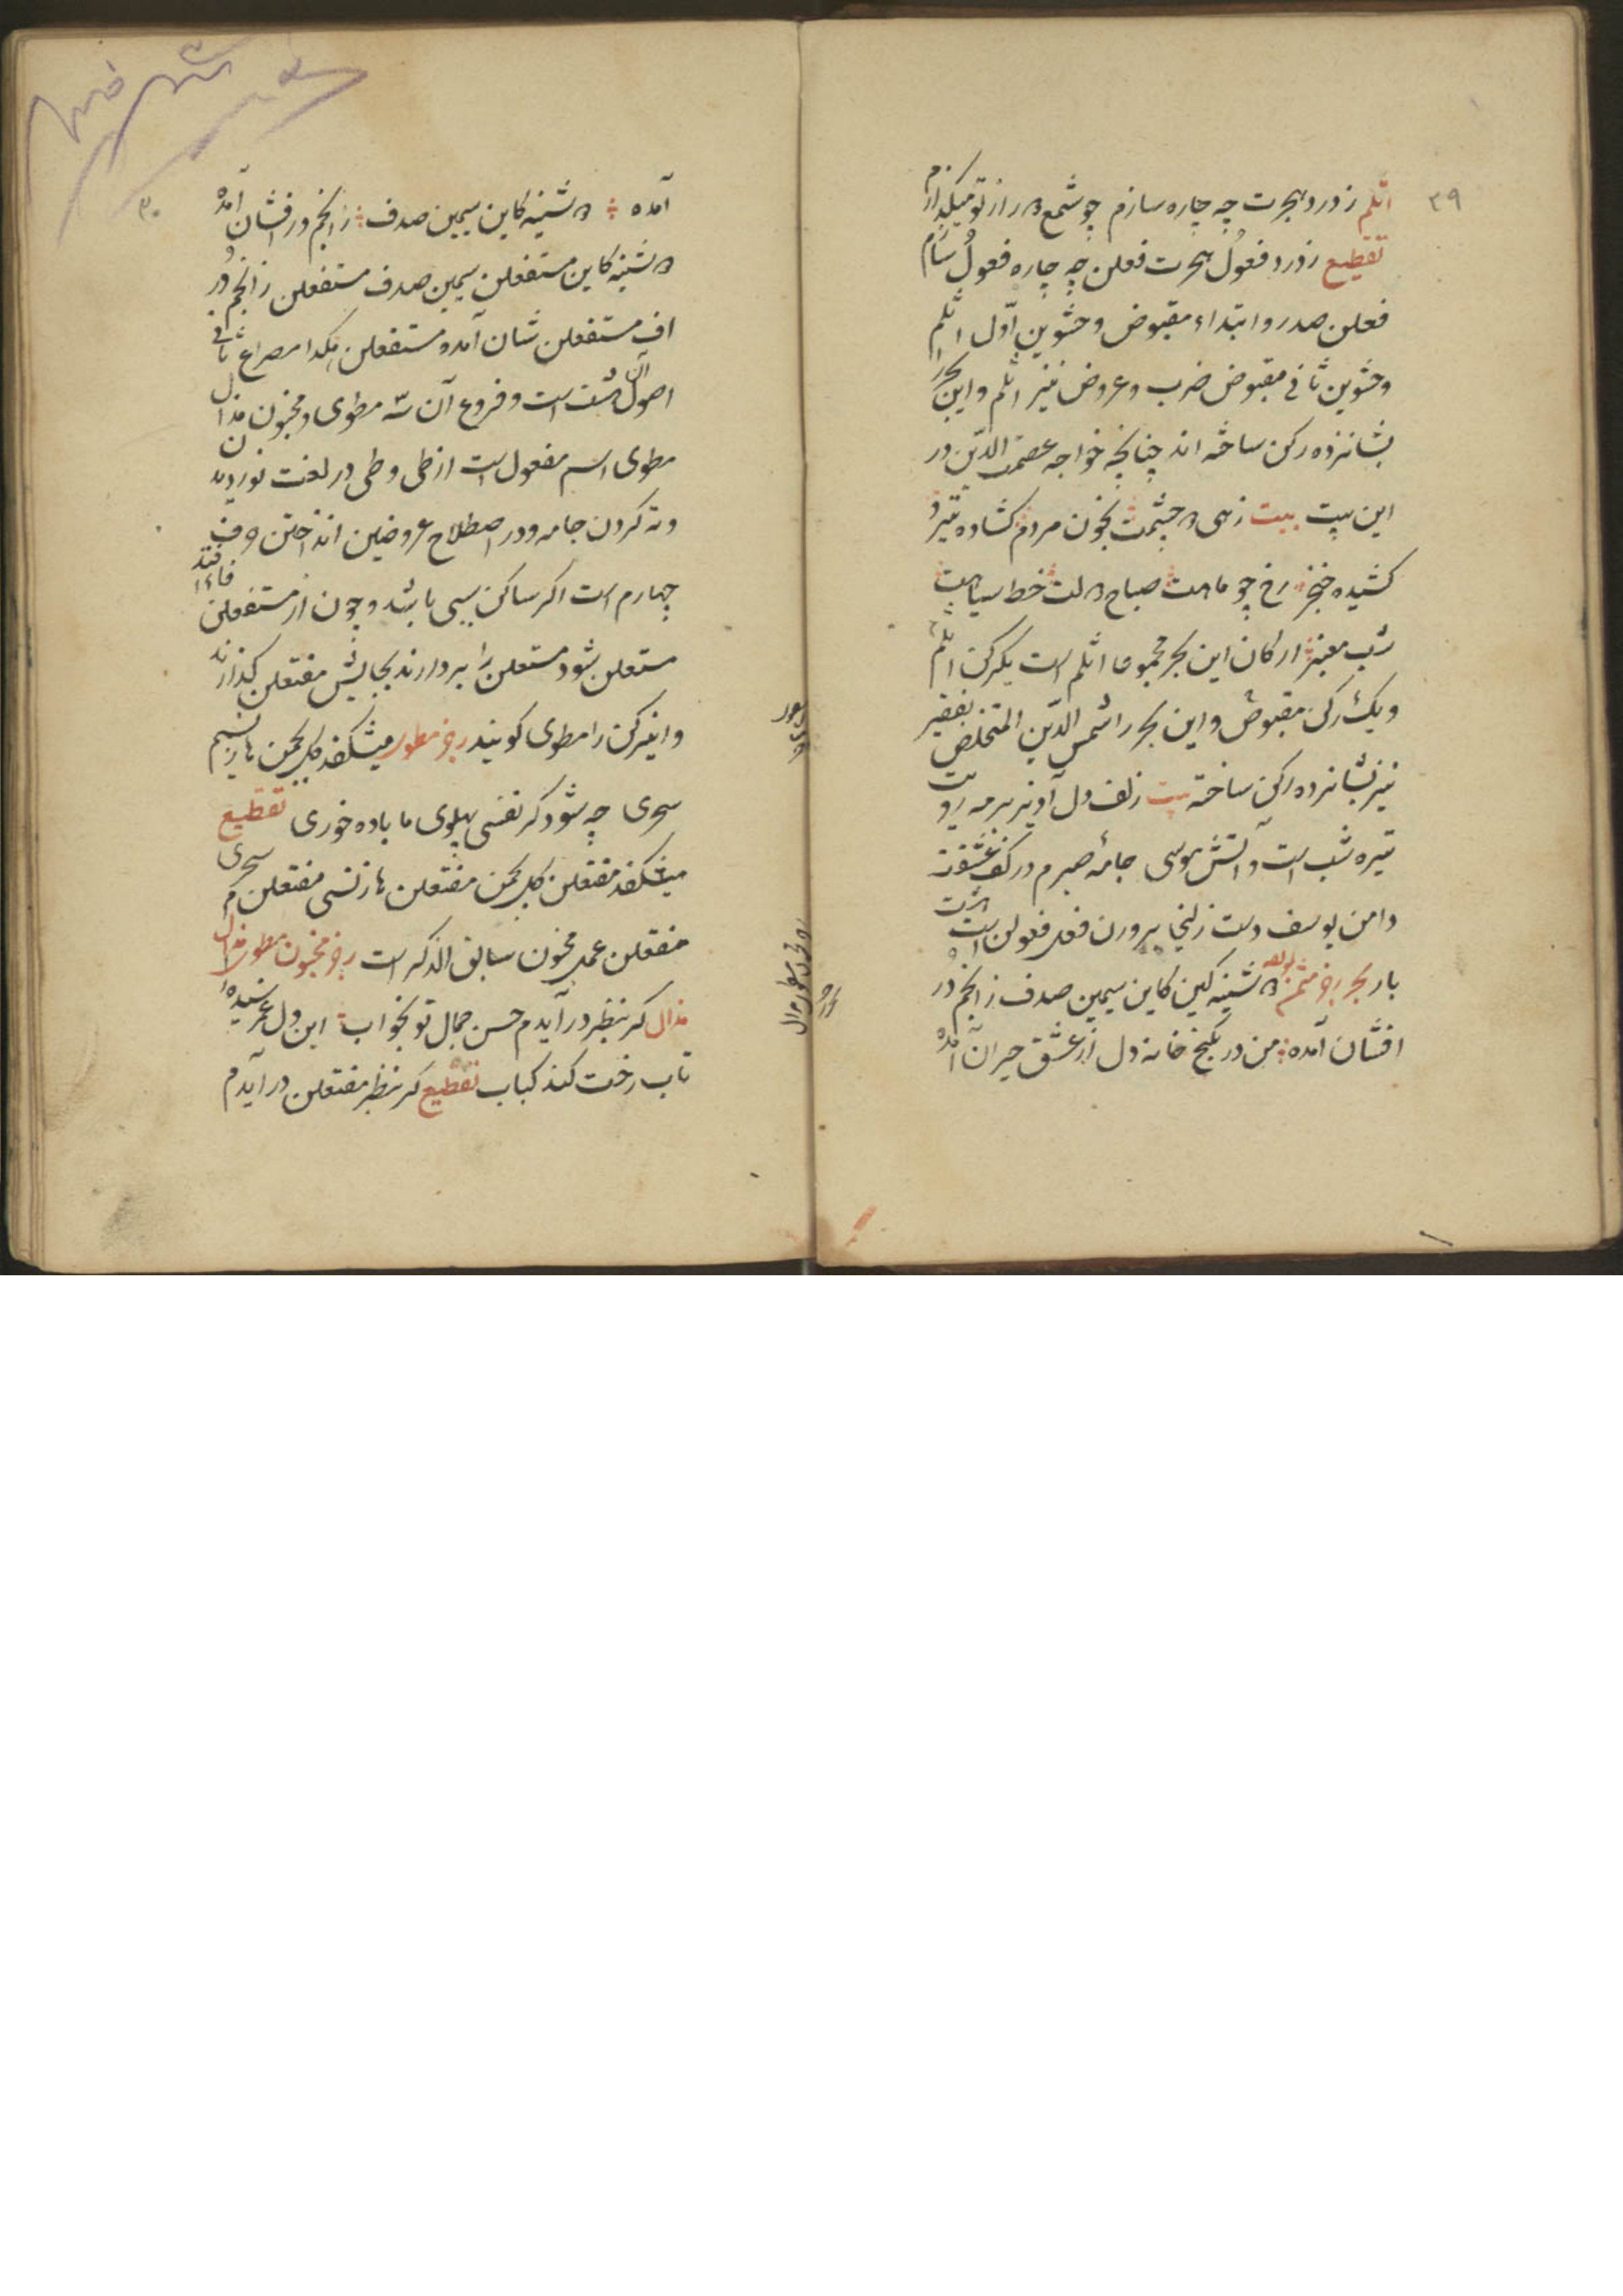 ۲۹
اثلم ز درد هجرت چه چاره سازم چو شمع هر از تو میگدازم
تقطیع ز درد فعول هجرت فعلن چه چاره فعول سازم
فعلن صدر و ابتداء مقبوض و حشوین اول اثلم
و حشوین ثانی مقبوض ضرب و عروض نیز اثلم و این بحر را
بشانزده رکن ساخته اند چنانچه خواجه عصمت الدین در
این بیت بیت زهی چشمت بخون مردم کشاده تیر و
کشیده خنجر رخ چو ماهت صباح لت خط سیاهت
شب معنبر ارکان این بحر مجموعا اثلم است یکرکن اثلم
و یک رکن مقبوض و این بحر را شمس الدین المتخلص بفقیر
نیز بشانزده رکن ساخته بیت زلف دل آویز بر مه رویت
تیره شب است و آتش موسی جامه صبرم در کف عشقت
دامن یوسف دست زلیخا بر وزن فعل فعولن است هشت
بار بحر رجز مثمن شینه کین کاین سیمین صدف ز انجم در
افشان آمده من در بکنج خانه دل از عشق حیران آمده
۳۰
آمده شینه کاین سیمین صدف ز انجم در افشان آمده
شینه کاین مستفعلن سیمین صدف مستفعلن ز انجم در
اف مستفعلن شان آمده مستفعلن هکذا مصراع ثانی
اصول آن هشت است و فروع آن سه مطوی و مخبون مذال
مطوی اسم مفعول است از طی و طی در لغت نوردیدن
و ته کردن جامه و در اصطلاح عروضین انداختن حرف
چهارم است اگر ساکن سببی باشد و چون از مستفعلن فاء افتد
مستعلن شود مستعلن را بردارند بجایش مفتعلن گذارند
و اینرکن را مطوی گویند رجز مطوی میشکفد گل بچمن باز نسیم
سحری چه شود گر نفسی پهلوی ما باده خوری تقطیع
میشکفد مفتعلن گل بچمن مفتعلن باز نسی مفتعلن م سحری
مفتعلن عمل مخبون سابق الذکر است رجز مخبون مطوی مذال
مذال گر بنظر در آیدم حسن جمال تو بخواب این دل غمرسیده را
تاب رخت کند کباب تقطیع گر بنظر مفتعلن در آیدم